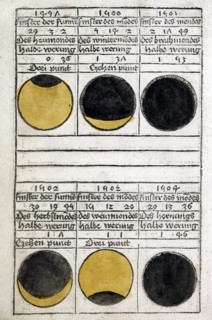 149Λ 1500 1501
finster der sunn finster des mōdes finster des mondes
29 3 2
Des heumondes Des wintermōdes Des brachmondes
halbe werung halbe werung halbe werung
0 36
Drei punct Zehen punct
1502 1502 1504
finster der sunn finster des mōdes finster des mondes
30 19 44 14 12 20 29 13 36
Des herbstmōdes Des weinmondes Des hornungs
halbe werung halbe werung halbe werung
1 Λ 1 1 1 46
Zehen punct Drei punct